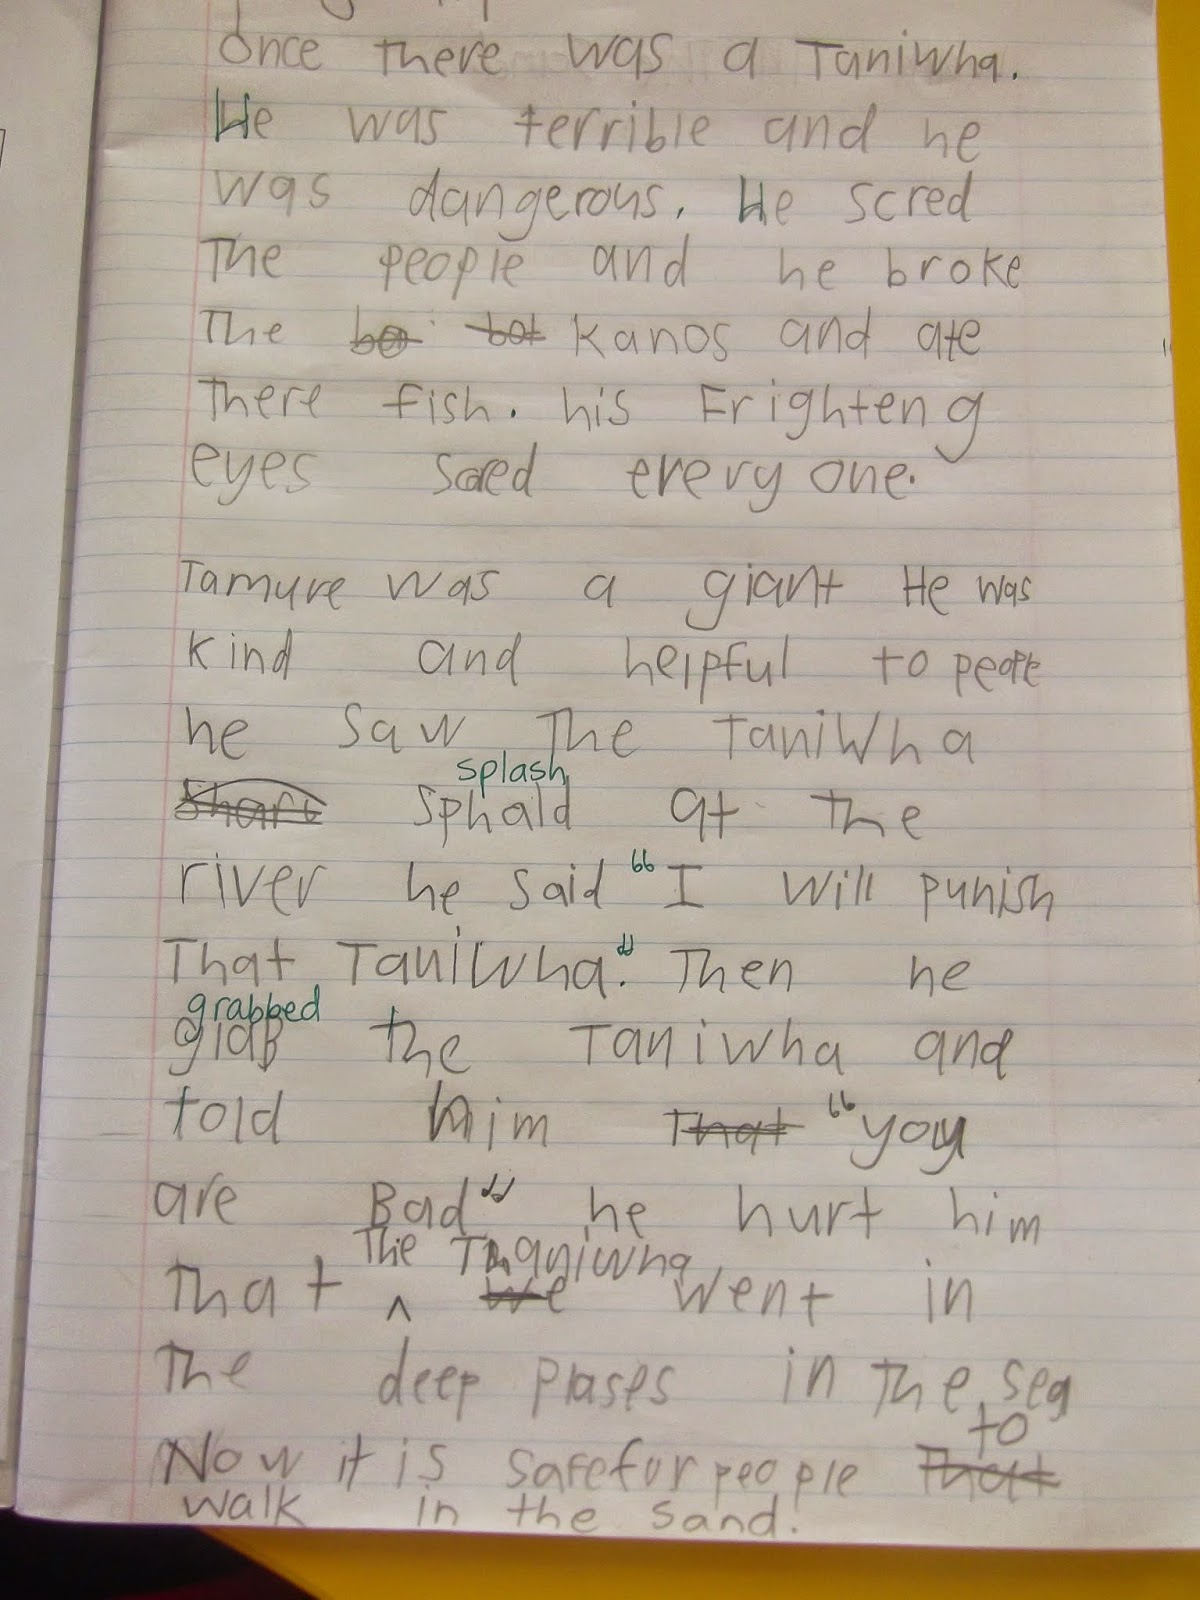 Once there was a Taniwha.
He was terrible and he
was dangerous. He scred
The people and he broke
The bo bot Kanos and ate
There fish. his Frighten g
eyes scred every one.
Tamure was a giant He was
kind and helpful to people
he saw The TaniWha
splash
Shart Sphald at The
river he said “I will punish
That Taniwha.” Then he
grabbed
glab the Taniwha and
told him That “you
are Bad” he hurt him
The Thaniwha
That ^ we went in
The deep plases in The sea
to
Now it is safe for people That
walk in the sand.